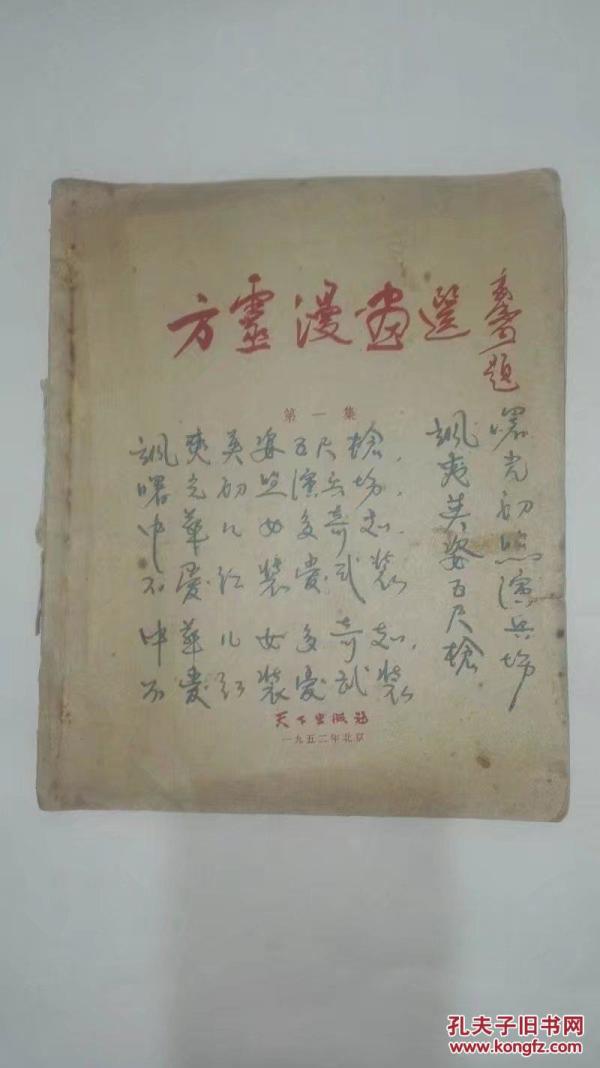 方靈漫畫選
題
第一集
颯爽英姿五尺槍,
曙光初照演兵場,
中華儿女多奇志,
不愛红裝愛武裝
中華儿女多奇志,
不愛红裝愛武裝
曙光初照演兵場
颯爽英姿五尺槍
天下出版社
一九五二年北京
孔夫子旧书网
www.kongfz.com